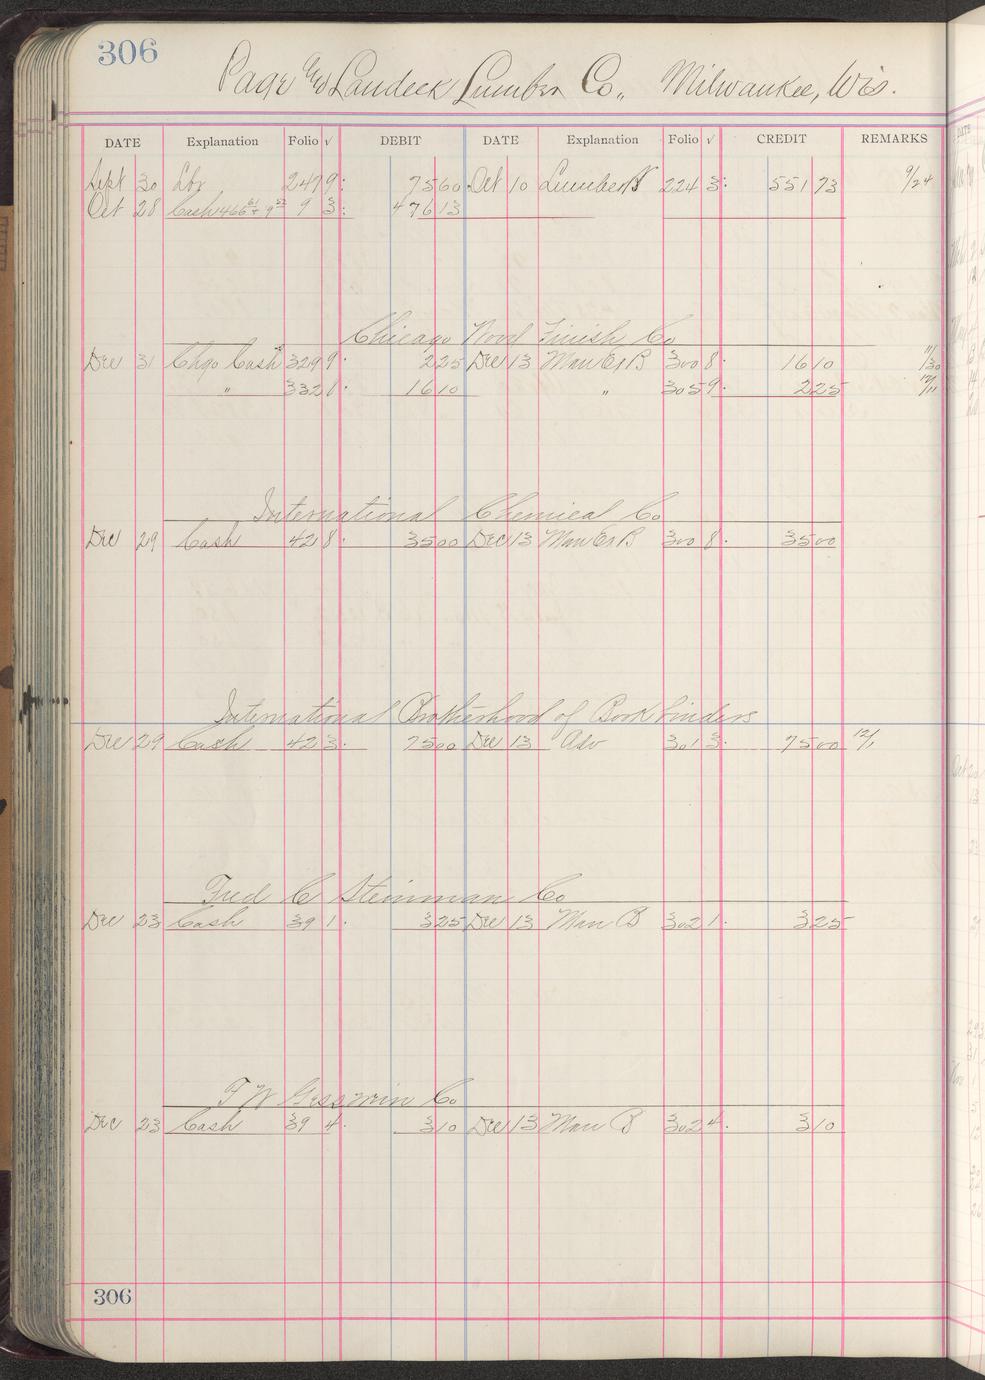 306
Page and Landeck Lumber Co., Milwaukee, Wis.
DATE Explanation Folio √ DEBIT DATE Explanation Folio √ CREDIT REMARKS
Sept 30 Lbr 247 9 75 60 Oct 10 Lumber B 224 3 551 73 9/24
Oct 28 Cash 466 61 + 9 52 9 3 476 13
Chicago Wood Finish Co
Dec 31 Chgo Cash 329 9 2 25 Dec 13 Man Ex B 300 8 16 10 11/30
" 332 8 16 10 " 305 9 2 25 12/11
International Chemical Co
Dec 29 Cash 42 8 35 00 Dec 13 Man Ex B 300 8 35 00
International Brotherhood of Bookbinders
Dec 29 Cash 42 3 75 00 Dec 13 Adv 301 3 75 00 12/1
Fred C Steinman Co
Dec 23 Cash 39 1 3 25 Dec 13 Man B 302 1 3 25
F W Gesswein Co
Dec 23 Cash 39 4 3 10 Dec 13 Man B 302 4 3 10
306